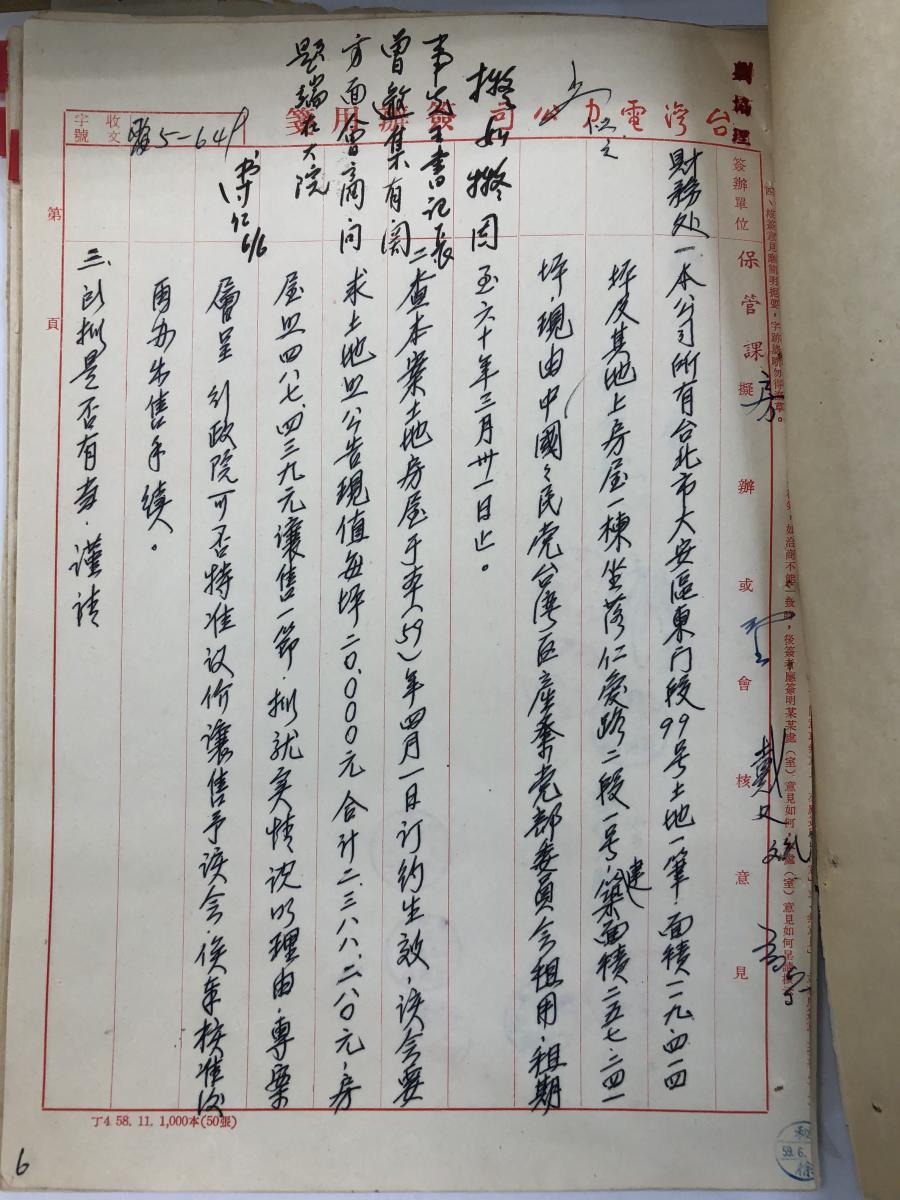 台灣電力公司簽辦用箋
收文
字號
5-649
簽辦單位
保管課
擬辦或會核意見
財務处
一本公司所有台北市大安區東门段99号土地一筆，面積一一九.四一四
坪及其地上房屋一棟坐落仁愛路二段一号，建築面積二五七.二四一
坪，現由中國々民党台湾區產業党部委員会租用，租期
至六十年三月卅一日止。
二查本案土地房屋于本(59)年四月一日订约生效，该会要
求土地照公告現值每坪二〇.〇〇〇元合计二.三八八.二八〇元，房
屋照四八七.四三九元讓售一節，拟就实情说明理由，專案
層呈 行政院可否特准议价讓售予该会，俟奉核准後
再办出售手续。
三、所拟是否有當，谨请
擬如擬因
曾邀集有関
方面會商问
題端在大院
6/6
第
頁
丁4 58. 11. 1,000本(50張)
6
59.6.